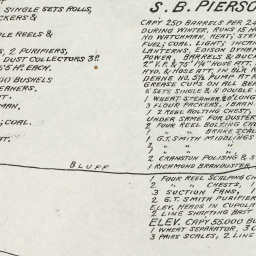 SINGLE SETS ROLLS,
CKERS &
LE REELS &
S, 2 PURIFIERS,
DUST COLLECTORS 3RD
5'S H'G. EACH.
00 BUSHELS
EANERS,
T.
MAN,
; COAL.
T.
BLUFF
S. B. PIERSO
CAPY 250 BARRELS PER 24
DURING WINTER, RUNS 15 H
NO WATCHMAN, HEAT; STE
FUEL; COAL. LIGHT; INCAN
LANTERNS, EDISON DYNAM
POWER) BARRELS & BUCK
2" V.P. & 75' 1¼" HOSE ATT.
HYD. & HOSE ATT. IN
DEANE NO. 5½ PUMP AT R
GREASE CUPS ON ALL BEA
6 SETS SINGLE & 8 DOUBLE
1 WHEAT STEAMER, 8" LONG
3 FLOUR PACKERS, 1 BRAN
1 2 REEL BOLTING CHEST,
UNDER SAME FOR DUSTER
2 FOUR REEL BOLTING CHE
" " BRAKE SCAL
1 G.T. SMITH MIDDLINGS
2 " "
2 " "
2 CRANSTON POLISHG & S
1 RICHMOND BRANDUSTER
1 FOUR REEL SCALPING CH
2 " " CHESTS, 1
3 SUCTION FANS, 1
2 G.T. SMITH PURIFIER
ELEV. HEADS IN CUPOLA
2 LINE SHAFTING BAST
ELEV. CAPY 55000 BU
1 WHEAT SEPARATOR, 3 C
3 PAIRS SCALES, 2 LINE